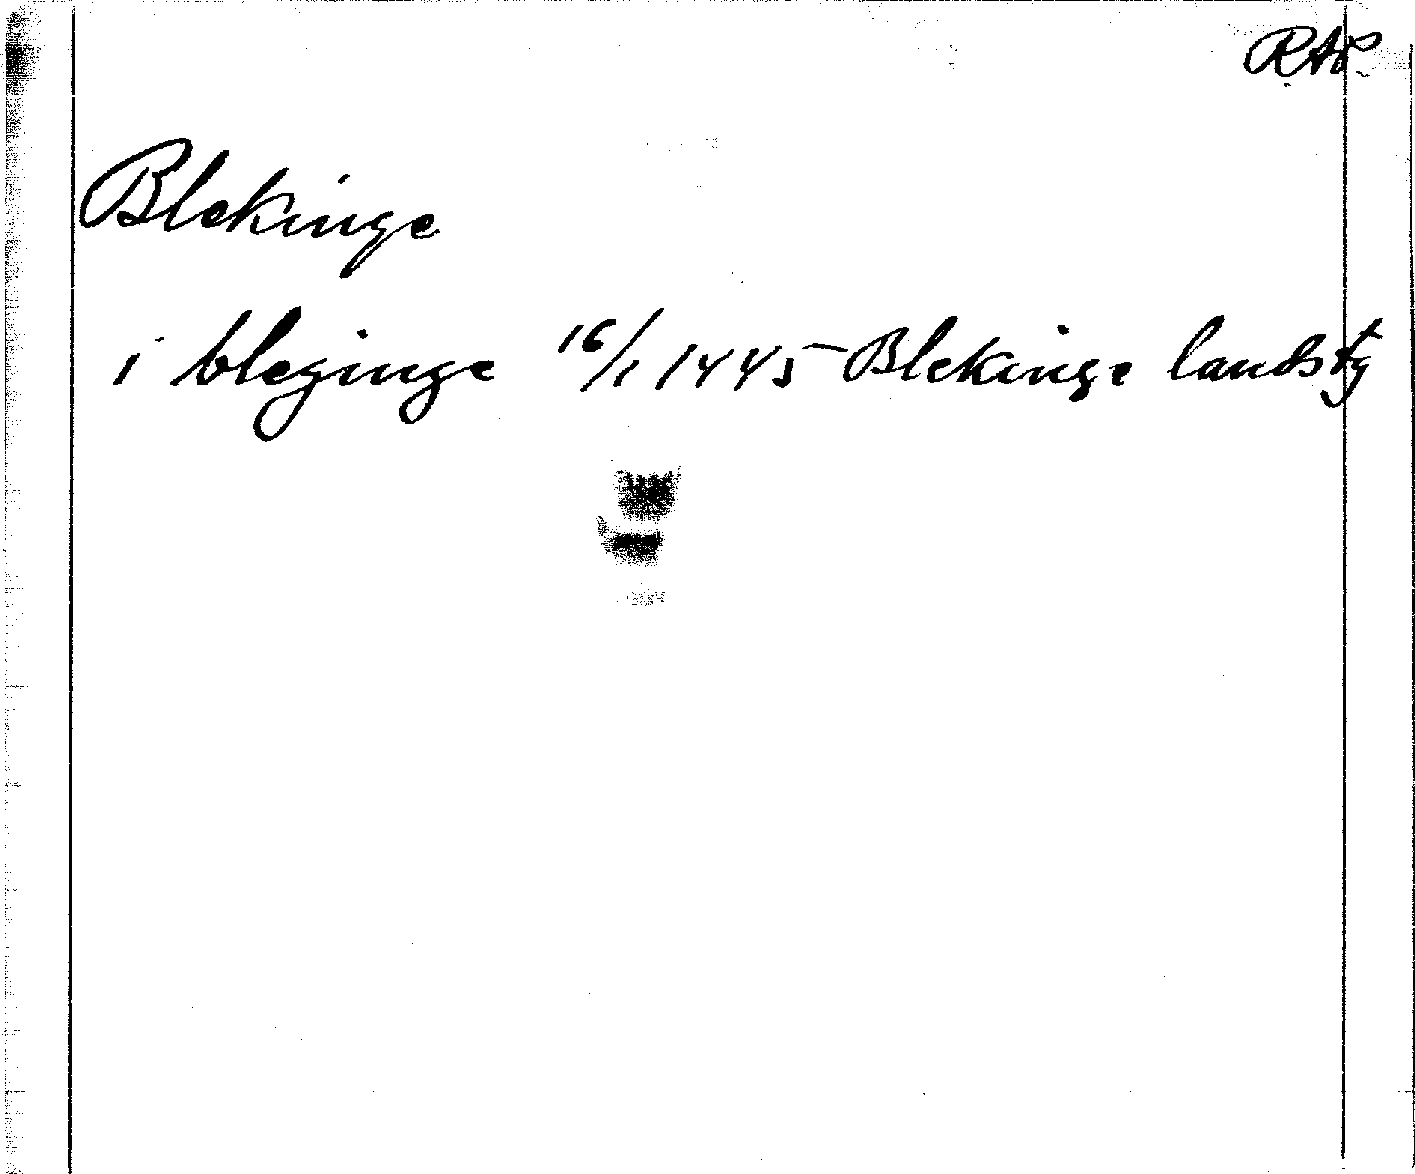 RAP
Blekinge
i bleginge 16/1 1445 Blekinge landstg